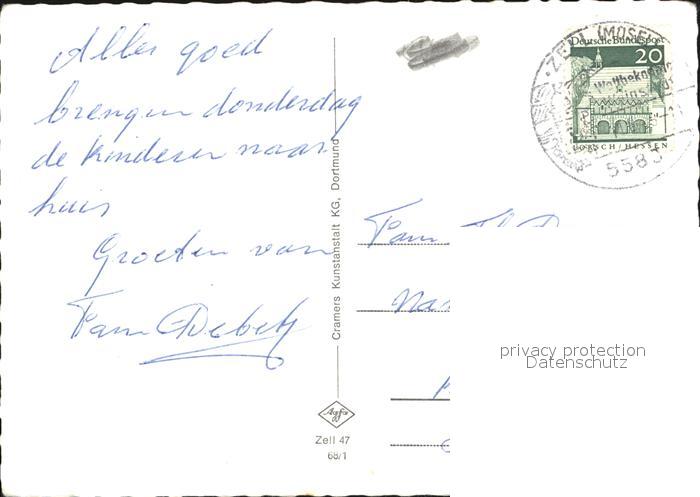 Alles goed
brengen donderdag
de kinderen naar
huis
Groeten van
Fam Debets
Cramers Kunstanstalt KG, Dortmund
Agfa
Zell 47
68/1
ZELL (MOSEL)
Deutsche Bundespost
20
LORSCH / HESSEN
5583
Fam
privacy protection
Datenschutz